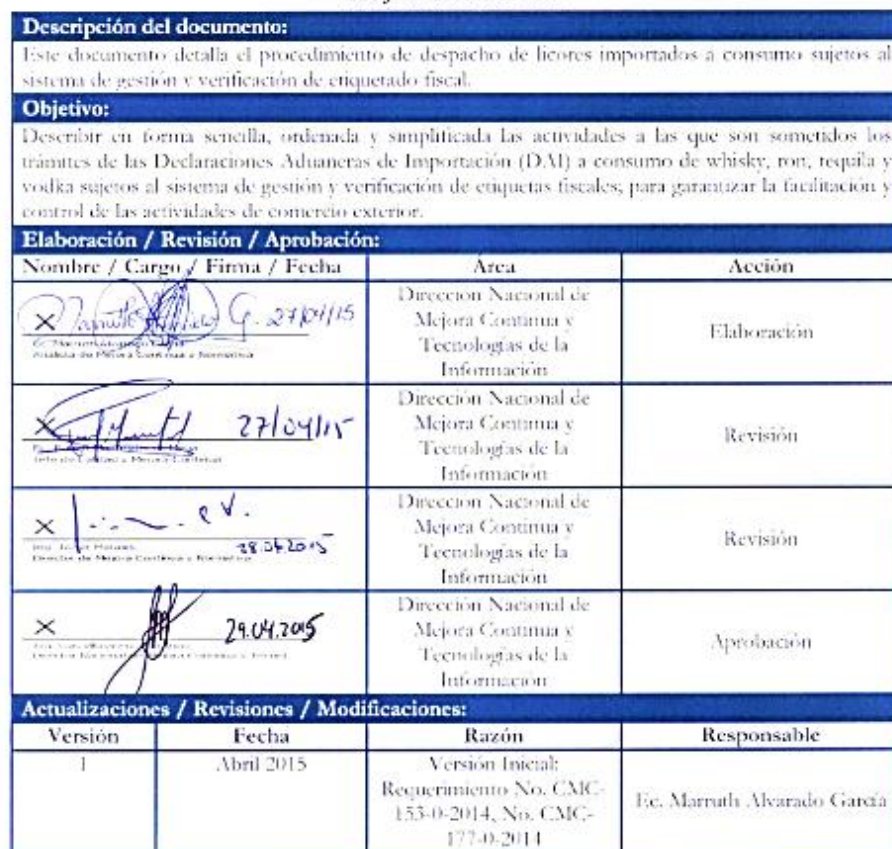 Descripción del documento:
Este documento detalla el procedimiento de despacho de licores importados a consumo sujetos al
sistema de gestión y verificación de etiquetado fiscal.
Objetivo:
Describir en forma sencilla, ordenada y simplificada las actividades a las que son sometidos los
trámites de las Declaraciones Aduaneras de Importación (DAI) a consumo de whisky, ron, tequila y
vodka sujetos al sistema de gestión y verificación de etiquetas fiscales; para garantizar la facilitación y
control de las actividades de comercio exterior.
Elaboración / Revisión / Aprobación:
Nombre / Cargo / Firma / Fecha
Área
Acción
X
27/04/15
Analista de Mejora Continua y Normativa
Dirección Nacional de
Mejora Continua y
Tecnologías de la
Información
Elaboración
X
27/04/15
Dirección Nacional de
Mejora Continua y
Tecnologías de la
Información
Revisión
X
28.04.2015
Director de Mejora Continua y Normativa
Dirección Nacional de
Mejora Continua y
Tecnologías de la
Información
Revisión
X
29.04.2015
Dirección Nacional de
Mejora Continua y
Tecnologías de la
Información
Aprobación
Actualizaciones / Revisiones / Modificaciones:
Versión
Fecha
Razón
Responsable
1
Abril 2015
Versión Inicial:
Requerimiento No. CMC-
153-0-2014, No. CMC-
177-0-2014
Ec. Marruth Alvarado García